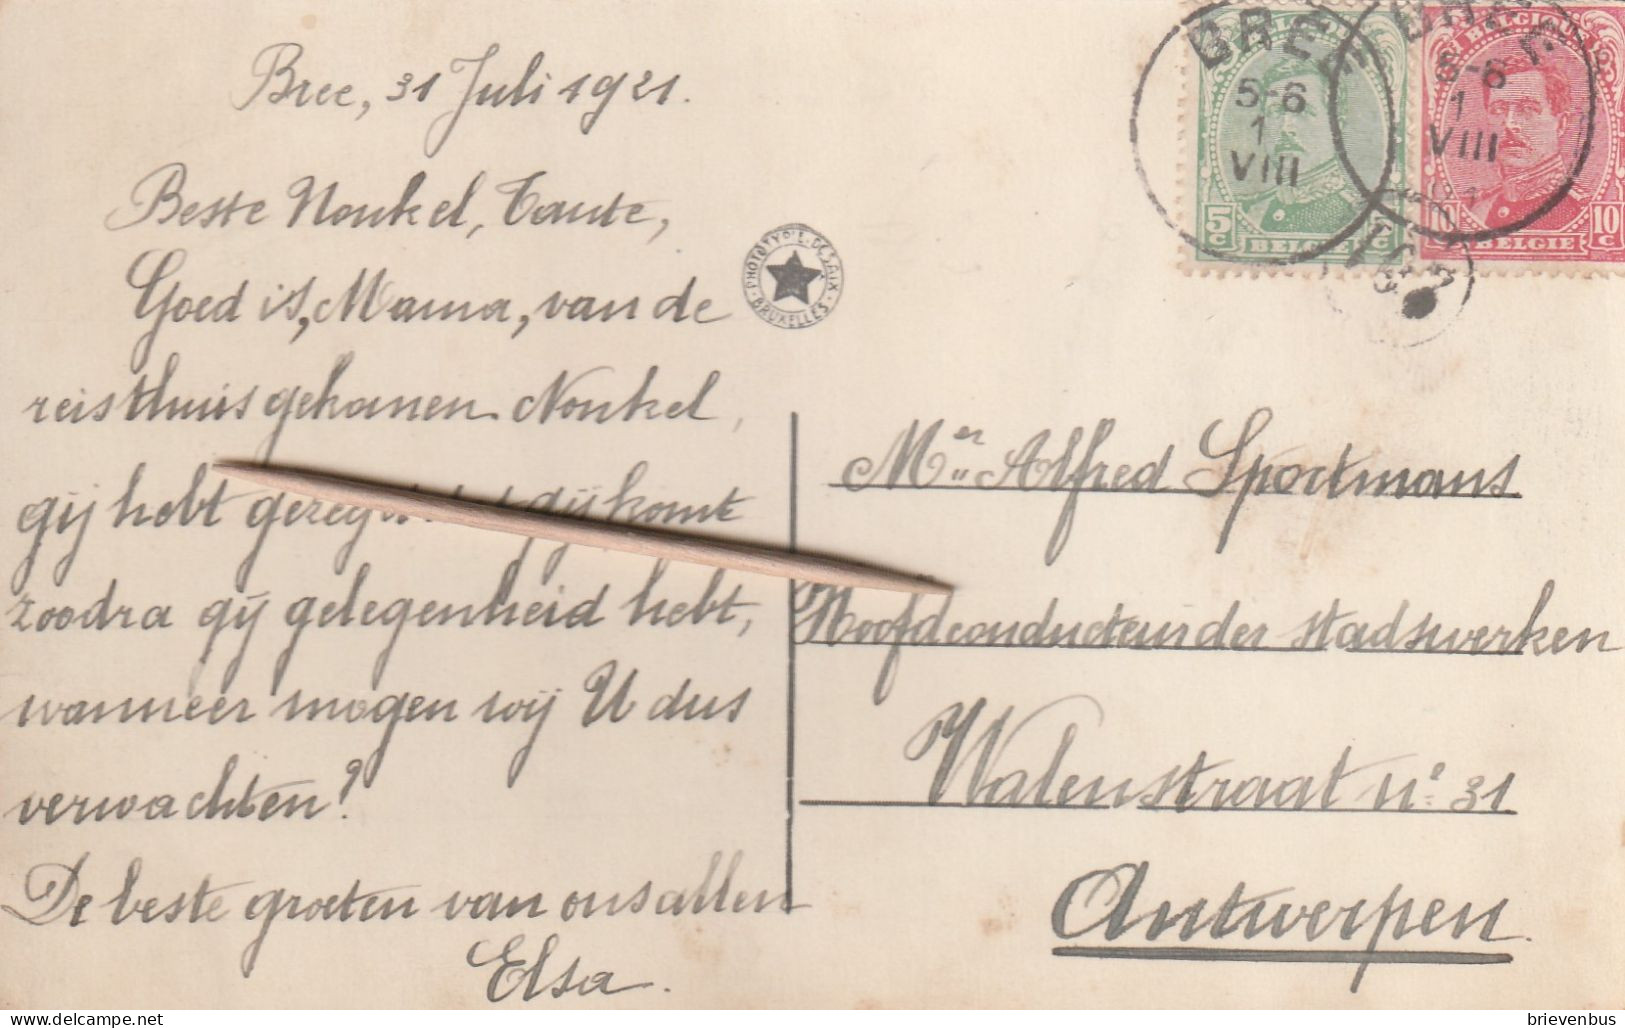 Bree, 31 Juli 1921.
Beste Nonkel, Tante,
Goed is, Mama, van de
reis thuis gekomen. Nonkel,
gij hebt gezegd dat gij komt
zoodra gij gelegenheid hebt,
wanneer mogen wij U dus
verwachten?
De beste groeten van ons allen
Elsa.
PHOTOTYPIE DESAIX BRUXELLES
BREE
5-6
1
VIII
5-6
1
VIII
5c BELGIE c
BELGIQUE
10c BELGIE 10c
Mer Alfred Sportmans
Hoofdconducteur der stadswerken
Walenstraat no 31
Antwerpen.
www.delcampe.net
brievenbus